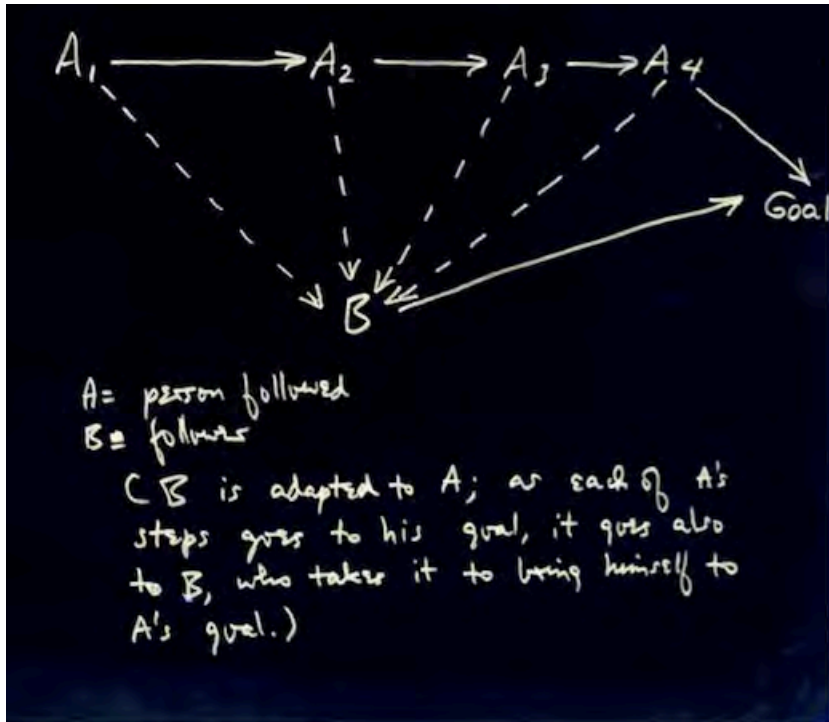 A₁ A₂ A₃ A₄
Goal
B
A= person followed
B= follower
(B is adapted to A; as each of A's
steps goes to his goal, it goes also
to B, who takes it to bring himself to
A's goal.)